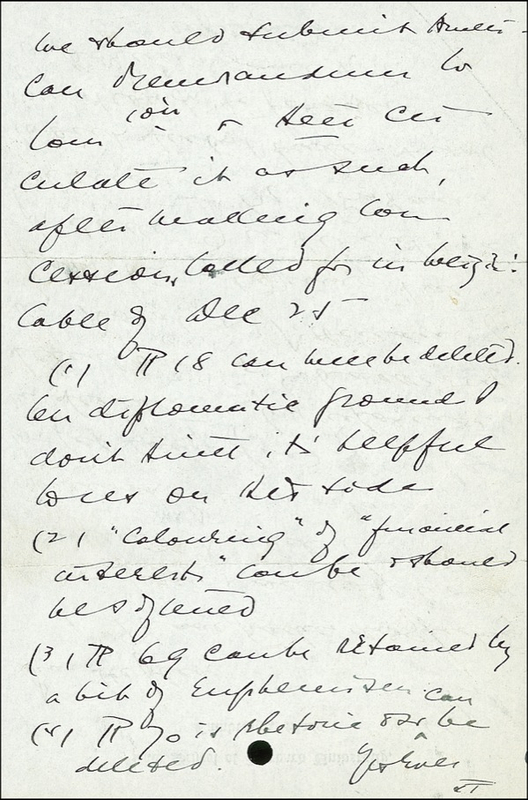 we should submit Ameri-
can Memorandum to
him & then cir
culate it as such,
after making con
cessions called for in
cable of Dec 25
(1) ¶ 18 can be deleted.
On diplomatic ground I
don't think it is helpful
to us on this side
(2) "Colouring" of "financial
interests" can be & should
be softened
(3) ¶ 69 can be retained by
a bit of Euphemism
(4) ¶ 70 is rhetoric & can be
deleted. Yrs ever